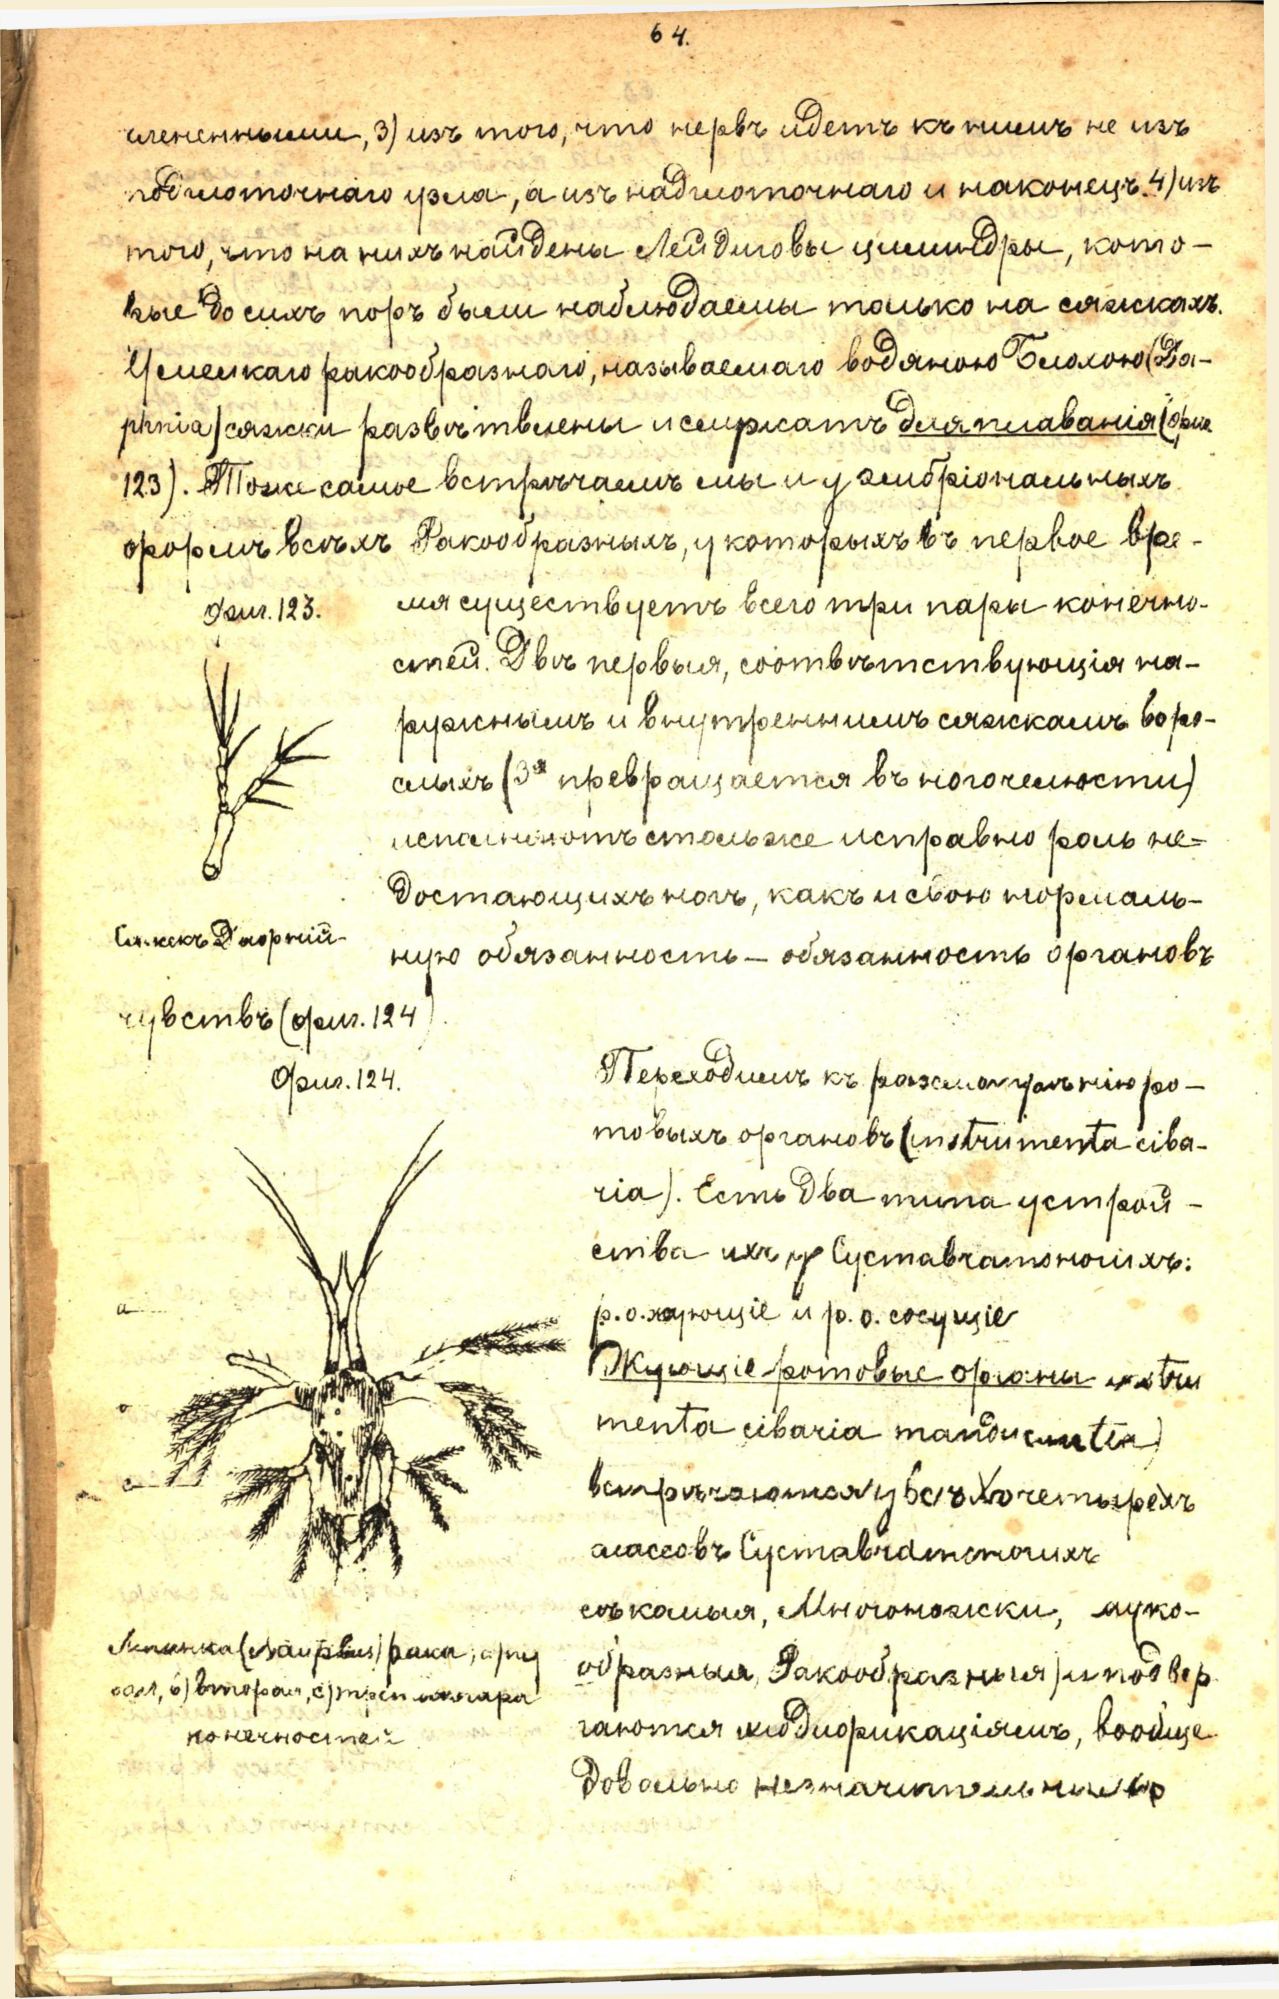 64.
члененными, 3) изъ того, что нервъ идетъ къ нимъ не изъ
подглоточнаго узла, а изъ надглоточнаго и наконецъ 4) изъ
того, что на нихъ найдены Лейдиговы цилиндры, кото-
рые до сихъ поръ были наблюдаемы только на сяжкахъ.
У мелкаго ракообразнаго, называемаго водяною Блохою (Da-
phnia) сяжки развѣтвлены и служатъ для плаванія (фиг.
123). Тоже самое встрѣчаемъ мы и у эмбріональныхъ
формъ всѣхъ Ракообразныхъ, у которыхъ въ первое вре-
Фиг. 123.
мя существуетъ всего три пары конечно-
стей. Двѣ первыя, соотвѣтствующія на-
ружнымъ и внутреннимъ сяжкамъ взро-
слыхъ (3я превращается въ ногочелюсти)
исполняютъ столь же исправно роль не-
достающихъ ногъ, какъ и свою нормаль-
Сяжекъ Дафній
ную обязанность – обязанность органовъ
чувствъ (фиг. 124).
Фиг. 124.
Переходимъ къ разсмотрѣнію ро-
товыхъ органовъ (instrumenta ciba-
ria). Есть два типа устрой-
ства ихъ у Суставчатоногихъ:
р. о. жующіе и р. о. сосущіе
Жующіе ротовые органы instru
menta cibaria manducantia)
встрѣчаются у всѣхъ четырехъ
классовъ Суставчатоногихъ
сѣкомыя, Многоножки, пауко-
образныя, Ракообразныя) и подвер
гаются модификаціямъ, вообще
довольно незначительнымъ
a
c
Личинка (Nauplius) рака; a) пер
вая, b) вторая, c) третья пара
конечностей